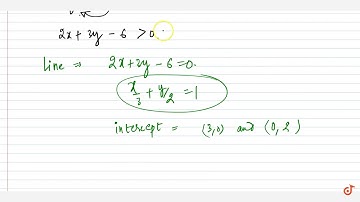 2x + 3y - 6 > 0.
Line ⇒ 2x + 3y - 6 = 0.
x/3 + y/2 = 1
intercept = (3,0) and (0,2)